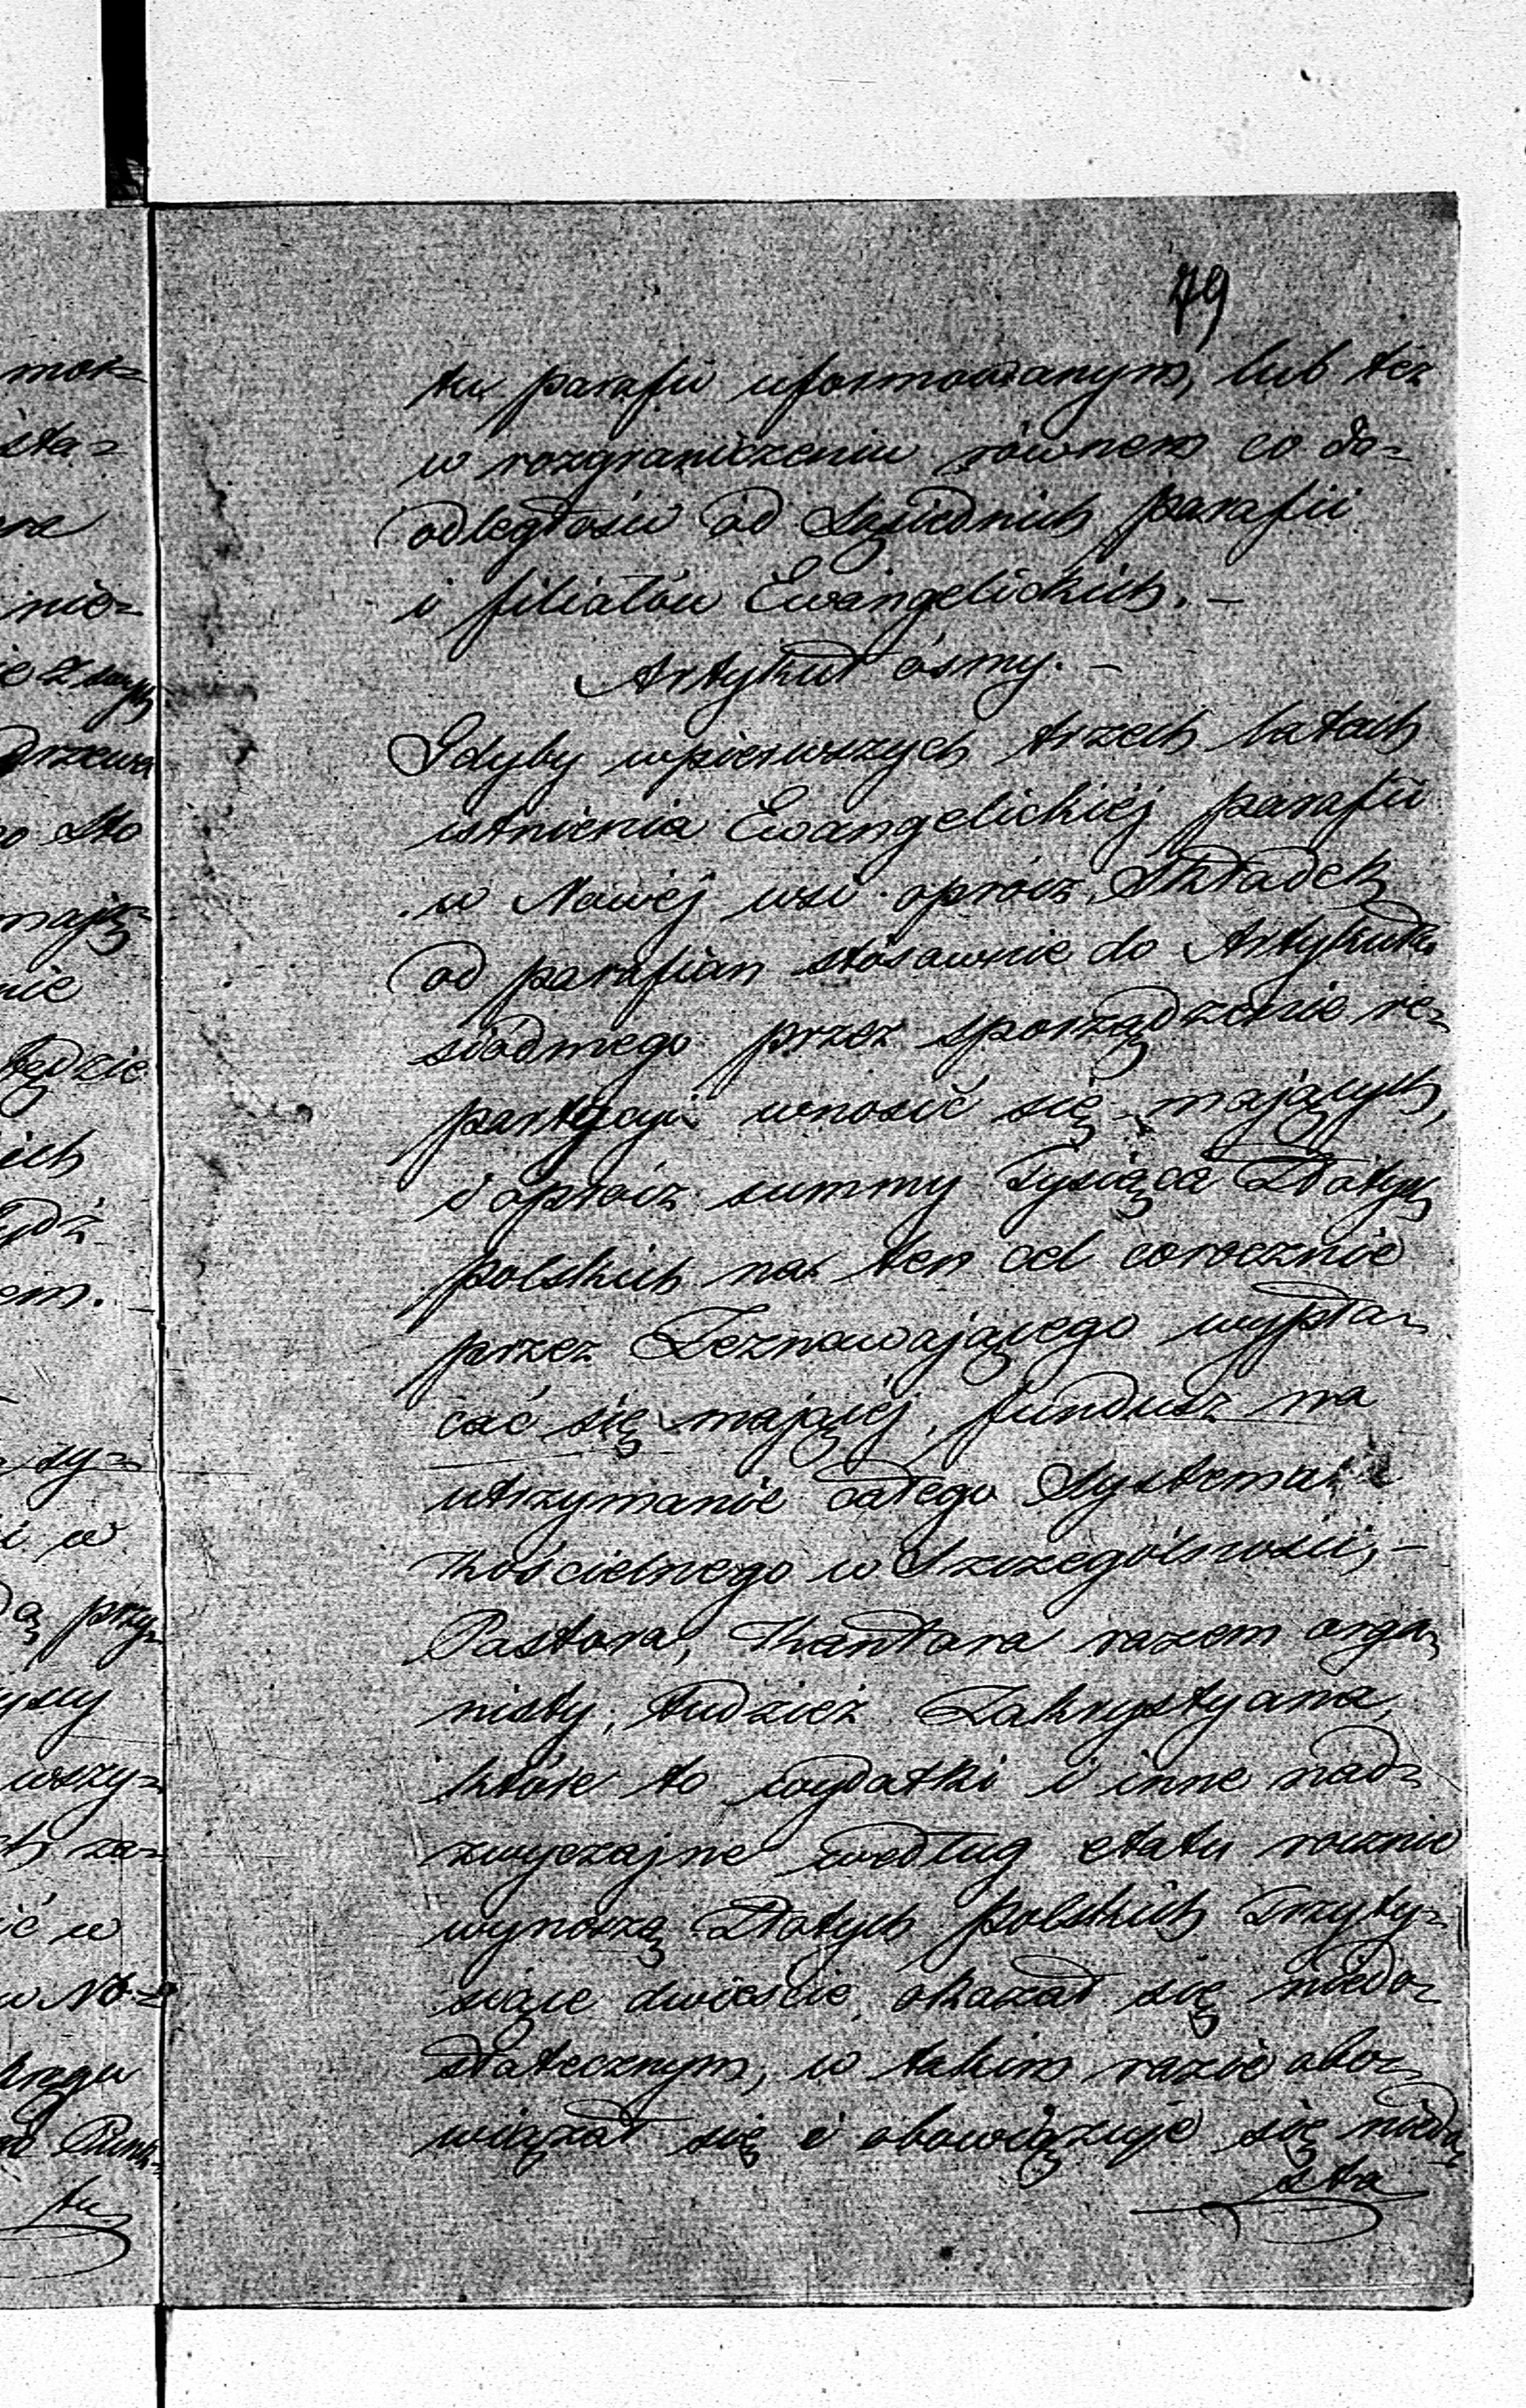 79
tu parafii uformowanym, lub też
w rozgraniczeniu równem co do=
odległości od Sąsiednich parafii
i filiałów Ewangelickich. –
Artykuł ósmy. –
Gdyby w pierwszych trzech latach
istnienia Ewangelickiéj parafii
w Nowéj wsi oprócz Składek
od parafian stósownie do Artykułu
siódmego przez sporządzenie re=
partycyi wnosić się mających,
i oprócz summy Tysiąca Złotych
polskich na ten cel corocznie
przez Zeznawającego wypła=
cać się mającéj, fundusz na
utrzymanie całego Systema
Kościelnego w Szczególności, –
Pastora, Kantora razem orga=
nisty, tudzież Zakrystyana,
które to wydatki i inne nad=
zwyczajne według etatu rocznie
wynoszą Złotych polskich Trzy ty=
siące dwieście, okazał się niedo=
statecznym, w takim razie obo=
wiązał się i obowiązuje się niedo=
sta
mok=
sta=
nie=
drzewa
Sto
mają=
nie
będzie
ich
em. –
sy=
i w
przy=
wszy=
za=
ić w
w No=
Punk=
tu